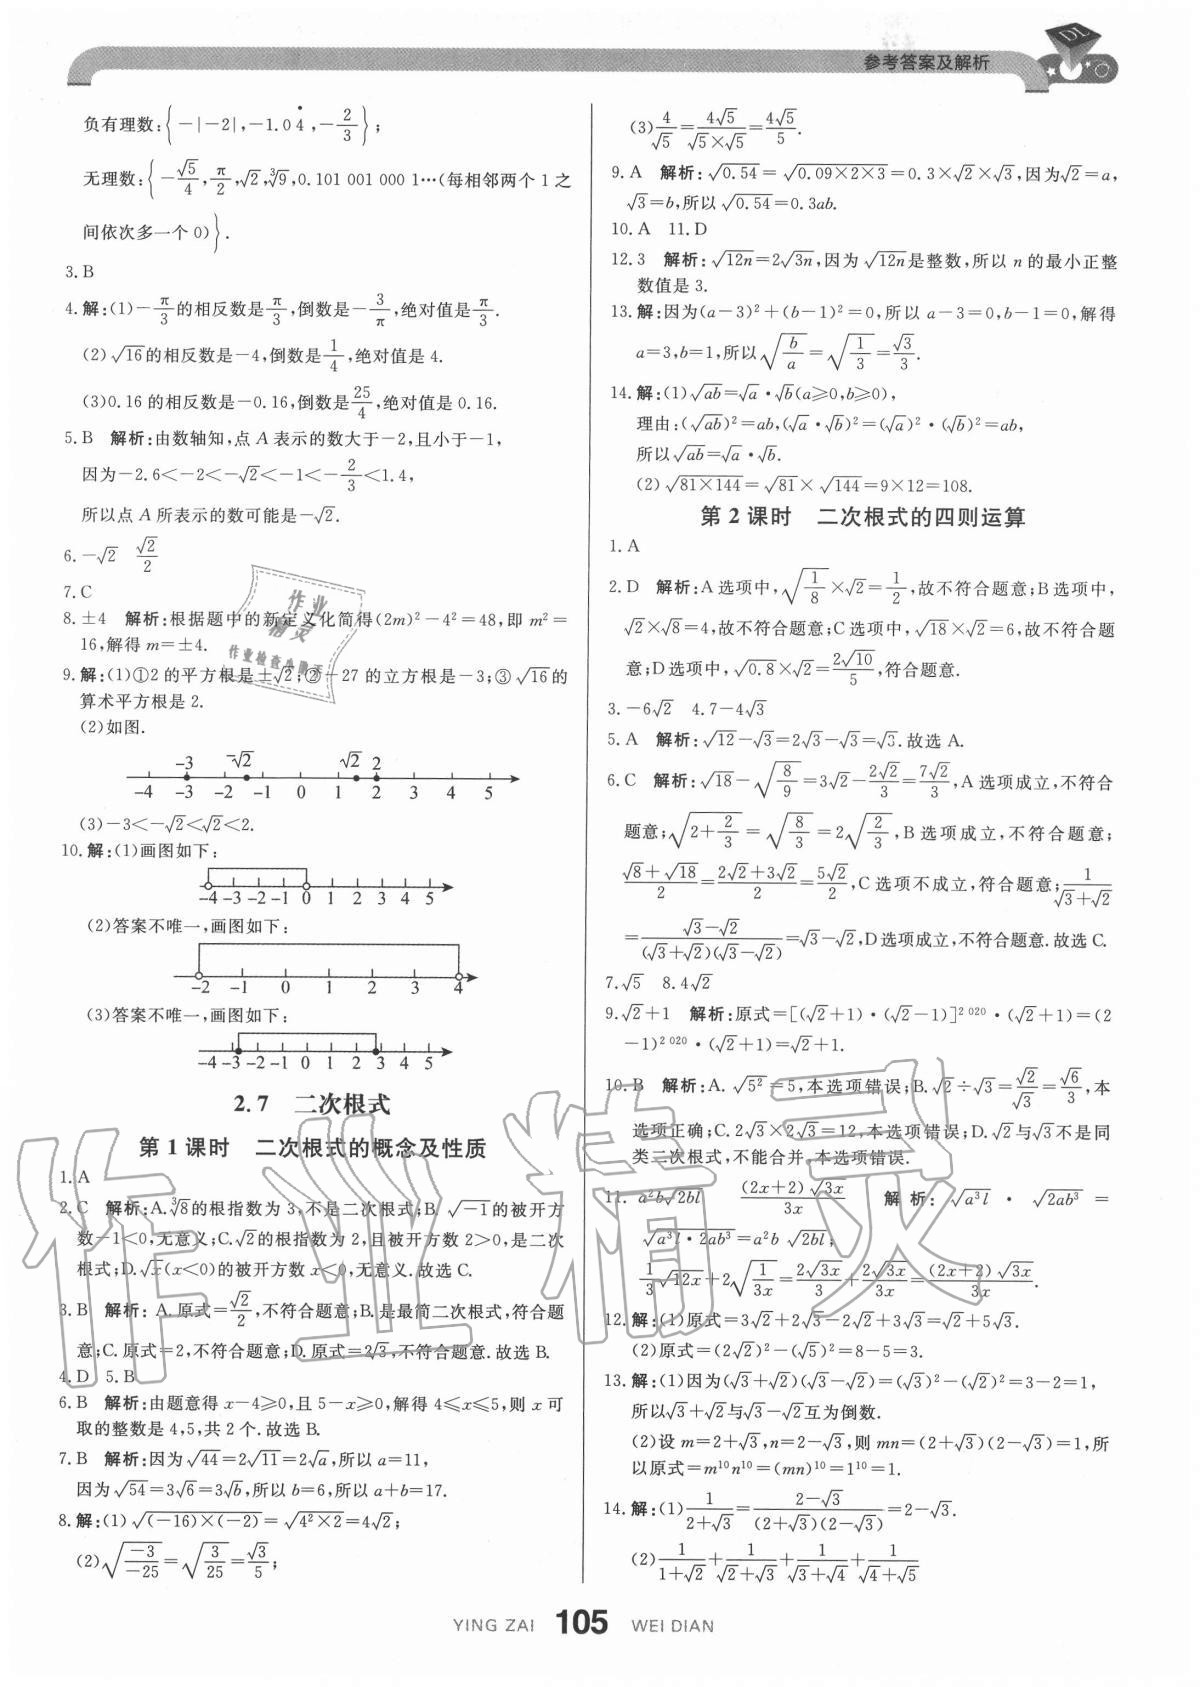 参考答案及解析
负有理数:{-|-2|,-1.0 4̇,-2/3};
无理数:{-√5/4,π/2,√2,∛9,0.101 001 000 1…(每相邻两个 1 之
间依次多一个 0)}.
3. B
4. 解:(1)-π/3的相反数是π/3,倒数是-3/π,绝对值是π/3.
(2)√16的相反数是-4,倒数是1/4,绝对值是 4.
(3)0.16 的相反数是-0.16,倒数是25/4,绝对值是 0.16.
5. B 解析:由数轴知,点 A 表示的数大于-2,且小于-1,
因为-2.6<-2<-√2<-1<-2/3<1.4,
所以点 A 所表示的数可能是-√2.
6. -√2 √2/2
7. C
8. ±4 解析:根据题中的新定义化简得(2m)²-4²=48,即 m²=
16,解得 m=±4.
9. 解:(1)①2 的平方根是±√2;②-27 的立方根是-3;③√16的
算术平方根是 2.
(2)如图.
-3 -√2 √2 2
-4 -3 -2 -1 0 1 2 3 4 5
(3)-3<-√2<√2<2.
10. 解:(1)画图如下:
-4 -3 -2 -1 0 1 2 3 4 5
(2)答案不唯一,画图如下:
-2 -1 0 1 2 3 4
(3)答案不唯一,画图如下:
-4 -3 -2 -1 0 1 2 3 4 5
2.7 二次根式
第 1 课时 二次根式的概念及性质
1. A
2. C 解析:A.∛8的根指数为 3,不是二次根式;B.√(-1)的被开方
数-1<0,无意义;C.√2的根指数为 2,且被开方数 2>0,是二次
根式;D.√x(x<0)的被开方数 x<0,无意义.故选 C.
3. B 解析:A.原式=√2/2,不符合题意;B.是最简二次根式,符合题
意;C.原式=2,不符合题意;D.原式=2√3,不符合题意.故选 B.
4. D 5. B
6. B 解析:由题意得 x-4≥0,且 5-x≥0,解得 4≤x≤5,则 x 可
取的整数是 4,5,共 2 个.故选 B.
7. B 解析:因为√44=2√11=2√a,所以 a=11,
因为√54=3√6=3√b,所以 b=6,所以 a+b=17.
8. 解:(1)√((-16)×(-2))=√(4²×2)=4√2;
(2)√(-3/-25)=√(3/25)=√3/5;
(3)4/√5=4√5/(√5×√5)=4√5/5.
9. A 解析:√0.54=√(0.09×2×3)=0.3×√2×√3,因为√2=a,
√3=b,所以√0.54=0.3ab.
10. A 11. D
12. 3 解析:√(12n)=2√(3n),因为√(12n)是整数,所以 n 的最小正整
数值是 3.
13. 解:因为(a-3)²+(b-1)²=0,所以 a-3=0,b-1=0,解得
a=3,b=1,所以√(b/a)=√(1/3)=√3/3.
14. 解:(1)√(ab)=√a·√b(a≥0,b≥0),
理由:(√(ab))²=ab,(√a·√b)²=(√a)²·(√b)²=ab,
所以√(ab)=√a·√b.
(2)√(81×144)=√81×√144=9×12=108.
第 2 课时 二次根式的四则运算
1. A
2. D 解析:A 选项中,√(1/8)×√2=1/2,故不符合题意;B 选项中,
√2×√8=4,故不符合题意;C 选项中,√18×√2=6,故不符合题
意;D 选项中,√0.8×√2=2√10/5,符合题意.
3. -6√2 4. 7-4√3
5. A 解析:√12-√3=2√3-√3=√3.故选 A.
6. C 解析:√18-√(8/9)=3√2-2√2/3=7√2/3,A 选项成立,不符合
题意;√(2+2/3)=√(8/3)=2√(2/3),B 选项成立,不符合题意;
(√8+√18)/2=(2√2+3√2)/2=5√2/2,C 选项不成立,符合题意;1/(√3+√2)
=(√3-√2)/((√3+√2)(√3-√2))=√3-√2,D 选项成立,不符合题意.故选 C.
7. √5 8. 4√2
9. √2+1 解析:原式=[(√2+1)·(√2-1)]²⁰²⁰·(√2+1)=(2
-1)²⁰²⁰·(√2+1)=√2+1.
10. B 解析:A.√5²=5,本选项错误;B.√2÷√3=√2/√3=√6/3,本
选项正确;C.2√3×2√3=12,本选项错误;D.√2与√3不是同
类二次根式,不能合并,本选项错误.
11. a²b√(2bl) (2x+2)√(3x)/3x 解析:√(a³l)·√(2ab³)=
√(a³l·2ab³)=a²b√(2bl);
1/3√(12x)+2√(1/3x)=2√(3x)/3+2√(3x)/3x=(2x+2)√(3x)/3x.
12. 解:(1)原式=3√2+2√3-2√2+3√3=√2+5√3.
(2)原式=(2√2)²-(√5)²=8-5=3.
13. 解:(1)因为(√3+√2)(√3-√2)=(√3)²-(√2)²=3-2=1,
所以√3+√2与√3-√2互为倒数.
(2)设 m=2+√3,n=2-√3,则 mn=(2+√3)(2-√3)=1,所
以原式=m¹⁰n¹⁰=(mn)¹⁰=1¹⁰=1.
14. 解:(1)1/(2+√3)=(2-√3)/((2+√3)(2-√3))=2-√3.
(2)1/(1+√2)+1/(√2+√3)+1/(√3+√4)+1/(√4+√5)
YING ZAI 105 WEI DIAN
作业精灵
作业
精灵
作业检查小助手